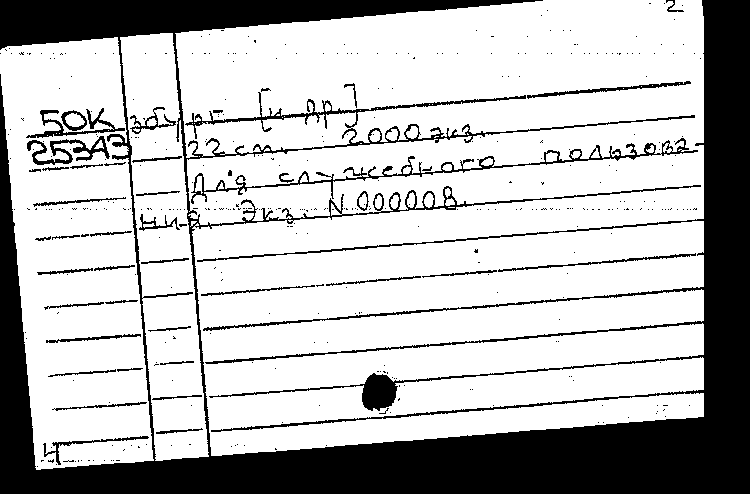 2
50К збург [и др.]
25343 22 см. 2000 экз.
Для служебного пользова-
ния. Экз. N 000008.
4